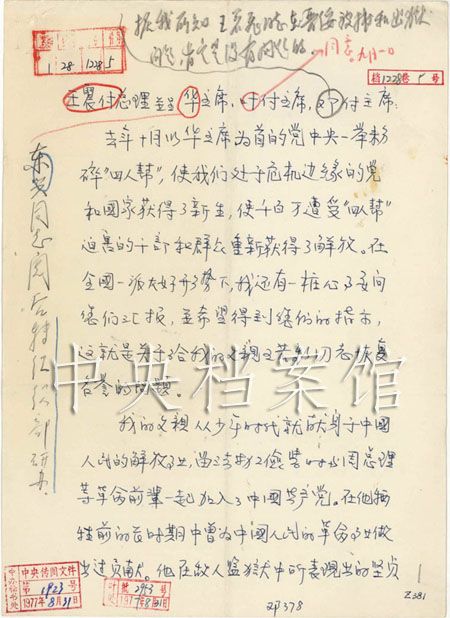 据我所知王若飞
同志 九月一日
1 28 1228 5
档1228卷5号
王震付总理并呈华主席、叶付主席、邓付主席：
去年十月以华主席为首的党中央一举粉
碎"四人帮"，使我们处于危机边缘的党
和国家获得了新生，使千百万遭受"四人帮"
迫害的干部和群众重新获得了解放。在
全国一派大好形势下，我还有一桩心事要向
您们汇报，并希望得到您们的指示，
这就是关于给我的父亲王若飞同志恢复
名誉的问题。
我的父亲从少年时代就献身于中国
人民的解放事业，留法勤工俭学时与周总理
等革命前辈一起加入了中国共产党。在他牺
牲前的长时期中曾为中国人民的革命事业做
出过贡献。他在敌人监狱中所表现出的坚贞
东兴同志阅后转组织部研办
中央档案馆
中央传阅文件
第1923号
1977年8月31日
1977年8月31日
邓378
Z381
1